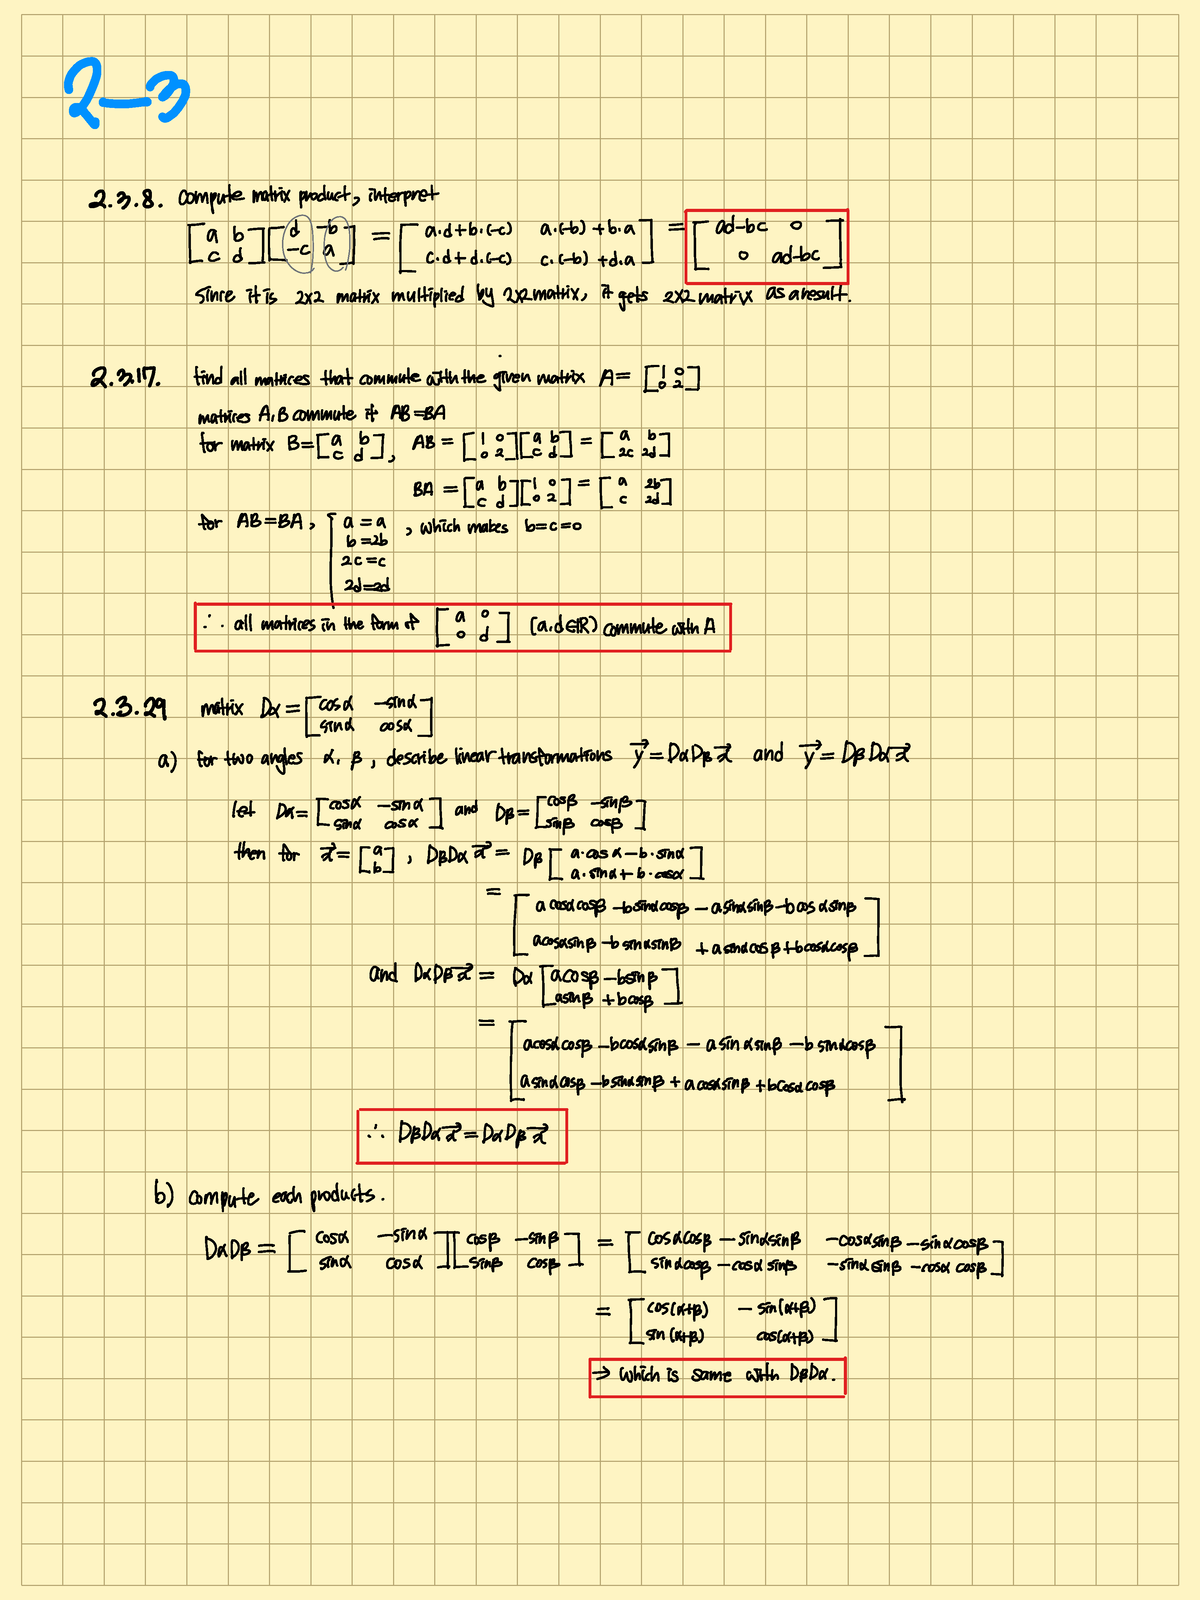 2-3
2.3.8. compute matrix product, interpret
[a b; c d][d -b; -c a] = [a·d+b·(-c) a·(-b)+b·a; c·d+d·(-c) c·(-b)+d·a] = [ad-bc 0; 0 ad-bc]
Since it is 2x2 matrix multiplied by 2x2 matrix, it gets 2x2 matrix as a result.
2.3.17. find all matrices that commute with the given matrix A = [1 0; 0 2]
matrices A, B commute if AB=BA
for matrix B=[a b; c d], AB = [1 0; 0 2][a b; c d] = [a b; 2c 2d]
BA = [a b; c d][1 0; 0 2] = [a 2b; c 2d]
for AB=BA, [a=a, which makes b=c=0
b=2b
2c=c
2d=2d
∴ all matrices in the form of [a 0; 0 d] (a,d∈ℝ) commute with A
2.3.29 matrix Dα = [cosα -sinα; sinα cosα]
a) for two angles α, β, describe linear transformations y⃗=DαDβx⃗ and y⃗=DβDαx⃗
let Dα=[cosα -sinα; sinα cosα] and Dβ=[cosβ -sinβ; sinβ cosβ]
then for x⃗=[a; b], DβDαx⃗ = Dβ[a·cosα-b·sinα; a·sinα+b·cosα]
= [acosαcosβ-bsinαcosβ-asinαsinβ-bcosαsinβ; acosαsinβ-bsinαsinβ+asinαcosβ+bcosαcosβ]
and DαDβx⃗ = Dα[acosβ-bsinβ; asinβ+bcosβ]
= [acosαcosβ-bcosαsinβ-asinαsinβ-bsinαcosβ; asinαcosβ-bsinαsinβ+acosαsinβ+bcosαcosβ]
∴ DβDαx⃗=DαDβx⃗
b) compute each products.
DαDβ = [cosα -sinα; sinα cosα][cosβ -sinβ; sinβ cosβ] = [cosαcosβ-sinαsinβ -cosαsinβ-sinαcosβ; sinαcosβ-cosαsinβ -sinαsinβ-cosαcosβ]
= [cos(α+β) -sin(α+β); sin(α+β) cos(α+β)]
→ which is same with DβDα.